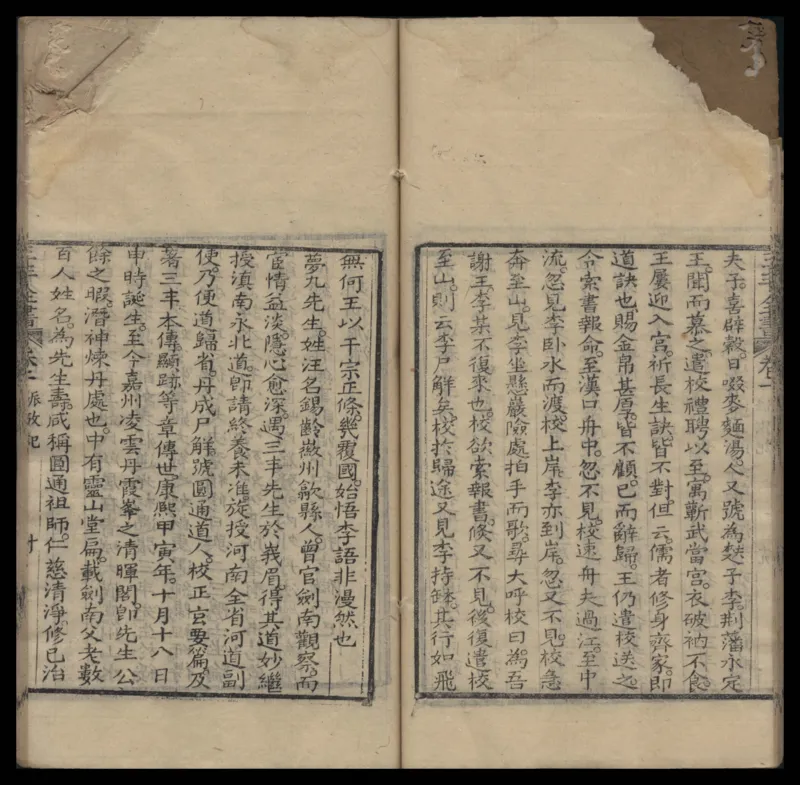 夫子。喜辟穀。日啜麥麵湯。人又號為麩子李。荆藩永定
王。聞而慕之。遣校禮聘以至。寓蘄武當宮。衣破衲不食。
王屢迎入宮。祈長生訣。皆不對。但云。儒者修身齊家。即
道訣也。賜金帛甚厚。皆不顧。已而辭歸。王仍遣校送之。
令索書報命。至漢口。舟中。忽不見。校速舟夫過江。至中
流。忽見李卧水而渡。校上岸。李亦到岸。忽又不見。校急
奔至山。見李坐懸巖險處。拍手而歌。尋大呼校曰。為吾
謝王。李某不復來也。校欲索報書。倏又不見。後復遣校
至山。則云李尸解矣。校於歸途。又見李持缽。其行如飛
無何。王以干宗正條。幾覆國。始悟李語非漫然也
夢九先生。姓汪名錫齡。徽州歙縣人。曾官劍南觀察。而
宦情益淡。隱心愈深。遇三丰先生於峩眉。得其道妙。繼
授滇南永北道。即請終養。未准。旋授河南全省河道副
使。乃便道歸省。丹成尸解。號圓通道人。校正玄要篇。及
著三丰本傳。顯跡等章傳世。康熙甲寅年。十月十八日
申時誕生。至今嘉州凌雲丹霞峯之清暉閣。即先生公
餘之暇。潛神煉丹處也。中有靈山堂扁。載劍南父老數
百人姓名。為先生壽。咸稱圓通祖師。仁慈清淨。修己治
三丰全書 卷一 派攷記